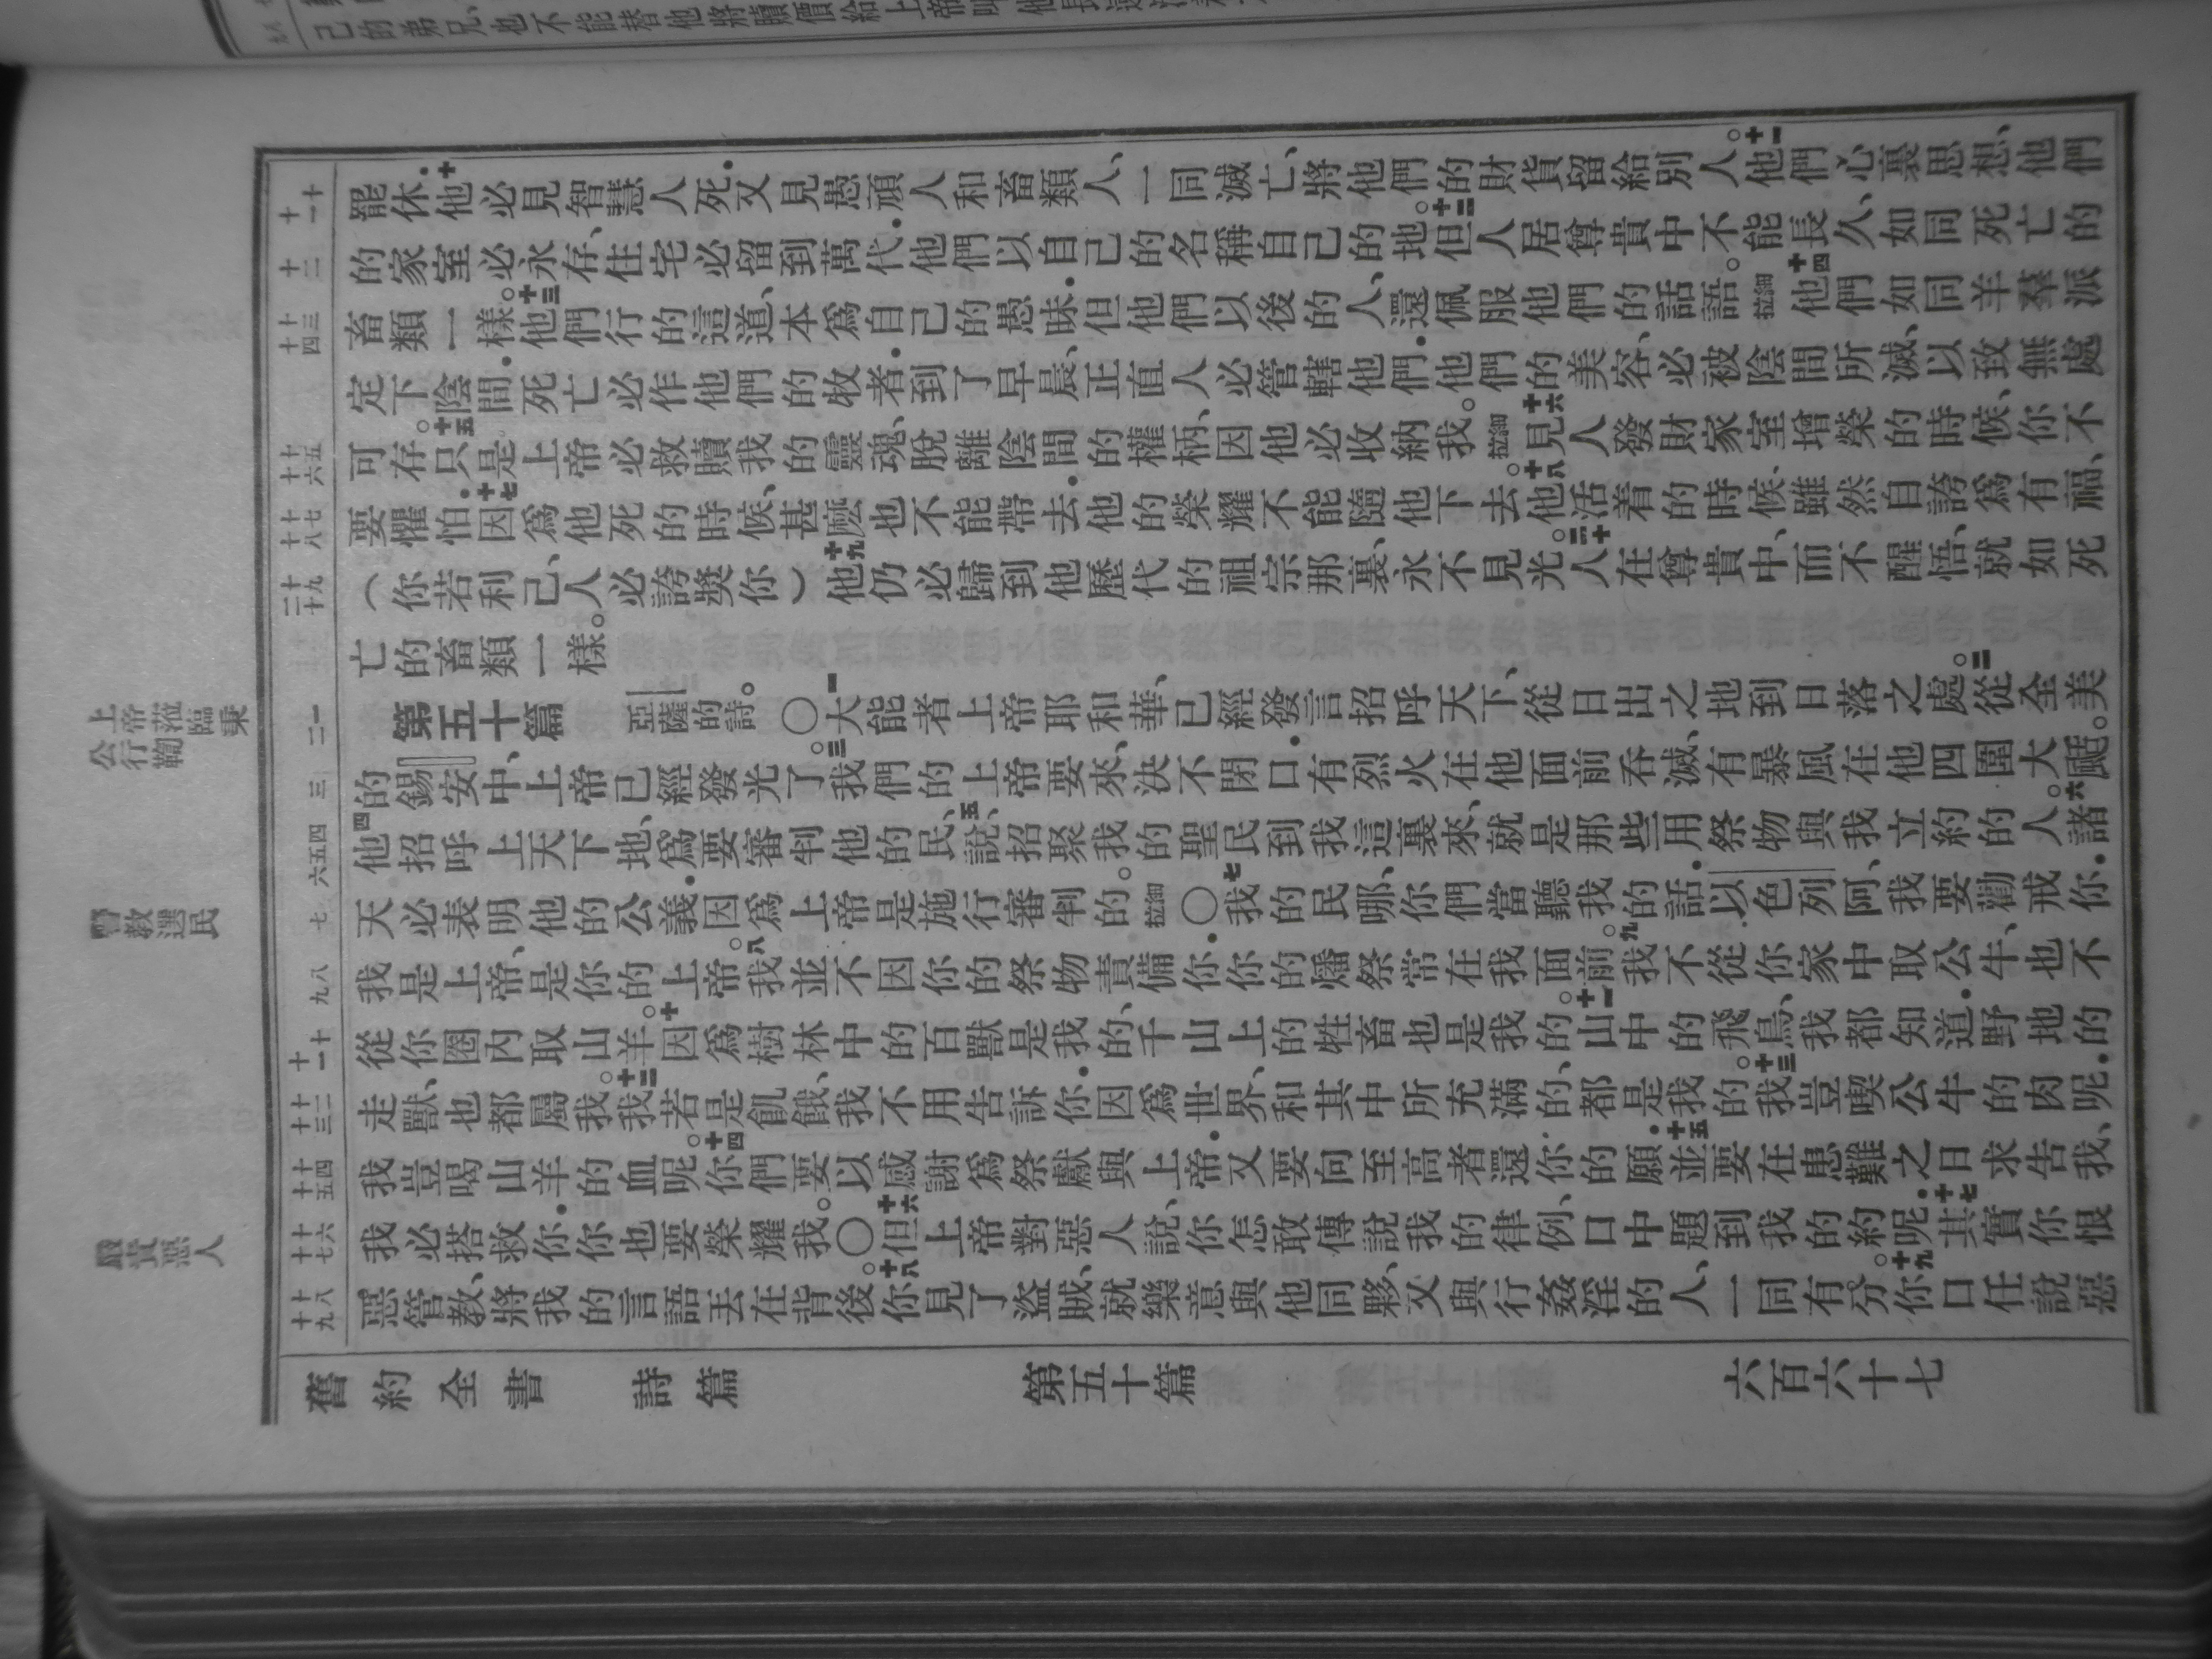 己的弟兄、也不能替他將贖價給上帝、叫他長遠活着、
罷休．十他必見智慧人死．又見愚頑人和畜類人、一同滅亡、將他們的財貨留給別人。十一他們心裏思想、他們
的家室必永存、住宅必留到萬代．他們以自己的名稱自己的地。十二但人居尊貴中不能長久、如同死亡的
畜類一樣。十三他們行的這道、本爲自己的愚昧．但他們以後的人、還佩服他們的話語。細拉十四他們如同羊羣派
定下陰間．死亡必作他們的牧者．到了早晨、正直人必管轄他們．他們的美容、必被陰間所滅、以致無處
可存。十五只是上帝必救贖我的靈魂、脫離陰間的權柄、因他必收納我。細拉十六見人發財家室增榮的時候、你不
要懼怕．十七因爲他死的時候、甚麽也不能帶去．他的榮耀不能隨他下去。十八他活着的時候、雖然自誇爲有福、
（你若利己、人必誇獎你）十九他仍必歸到他歷代的祖宗那裏、永不見光。二十人在尊貴中、而不醒悟、就如死
亡的畜類一樣。
第五十篇 亞薩的詩。〇一大能者上帝耶和華、已經發言招呼天下、從日出之地到日落之處。二從全美
的錫安中、上帝已經發光了。三我們的上帝要來、決不閉口．有烈火在他面前吞滅、有暴風在他四圍大颳。
四他招呼上天下地、爲要審判他的民、五說、招聚我的聖民到我這裏來、就是那些用祭物與我立約的人。六諸
天必表明他的公義．因爲上帝是施行審判的。細拉〇七我的民哪、你們當聽我的話．以色列阿、我要勸戒你．
我是上帝、是你的上帝。八我並不因你的祭物責備你．你的燔祭常在我面前。九我不從你家中取公牛、也不
從你圈內取山羊。十因爲樹林中的百獸是我的、千山上的牲畜也是我的。十一山中的飛鳥、我都知道．野地的
走獸、也都屬我。十二我若是飢餓、我不用告訴你．因爲世界、和其中所充滿的、都是我的。十三我豈喫公牛的肉呢．
我豈喝山羊的血呢。十四你們要以感謝爲祭獻與上帝．又要向至高者還你的願．十五並要在患難之日求告我、
我必搭救你．你也要榮耀我。〇十六但上帝對惡人說、你怎敢傳說我的律例、口中題到我的約呢．十七其實你恨
惡管教、將我的言語丟在背後。十八你見了盜賊、就樂意與他同夥、又與行姦淫的人、一同有分。十九你口任說惡
舊約全書 詩篇 第五十篇 六百六十七
十 十一
十二
十三 十四
十五 十六
十七 十八
十九 二十
一 二
三
四 五 六
七
八 九
十 十一
十二 十三
十四 十五
十六 十七
十八 十九
上帝蒞臨秉
公行鞫
警教選民
嚴責惡人